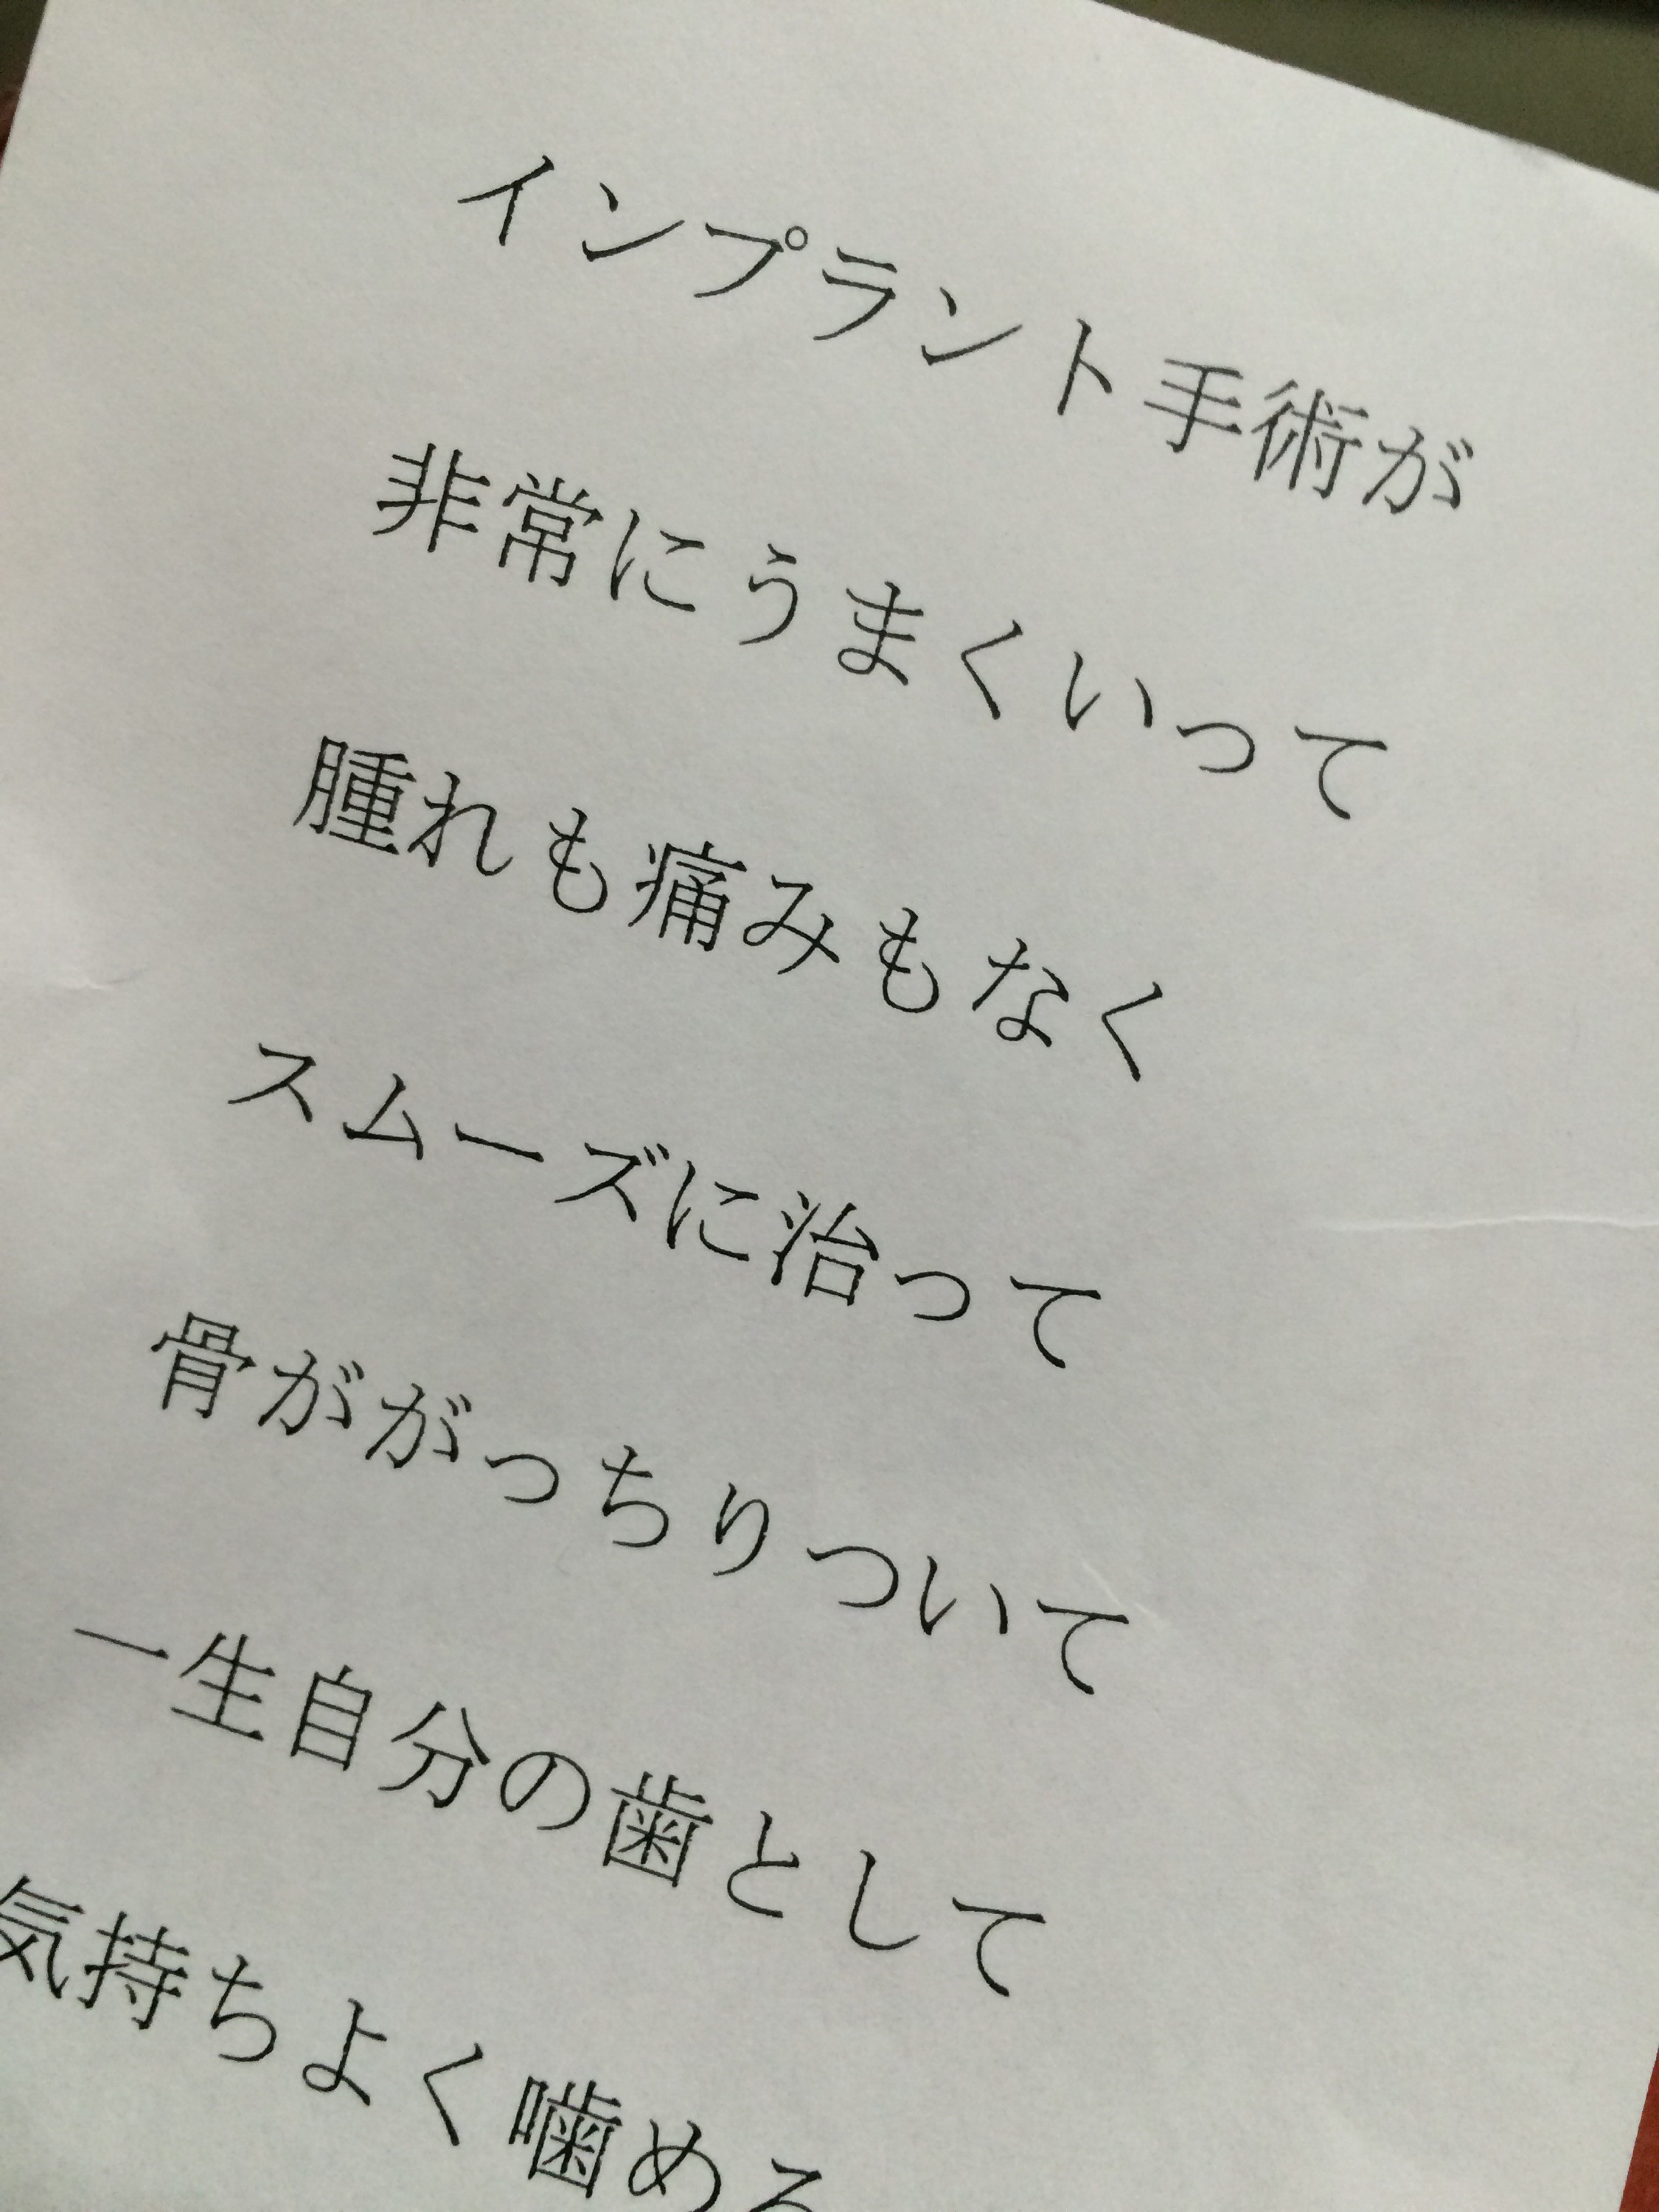 インプラント手術が
非常にうまくいって
腫れも痛みもなく
スムーズに治って
骨ががっちりついて
一生自分の歯として
気持ちよく噛める